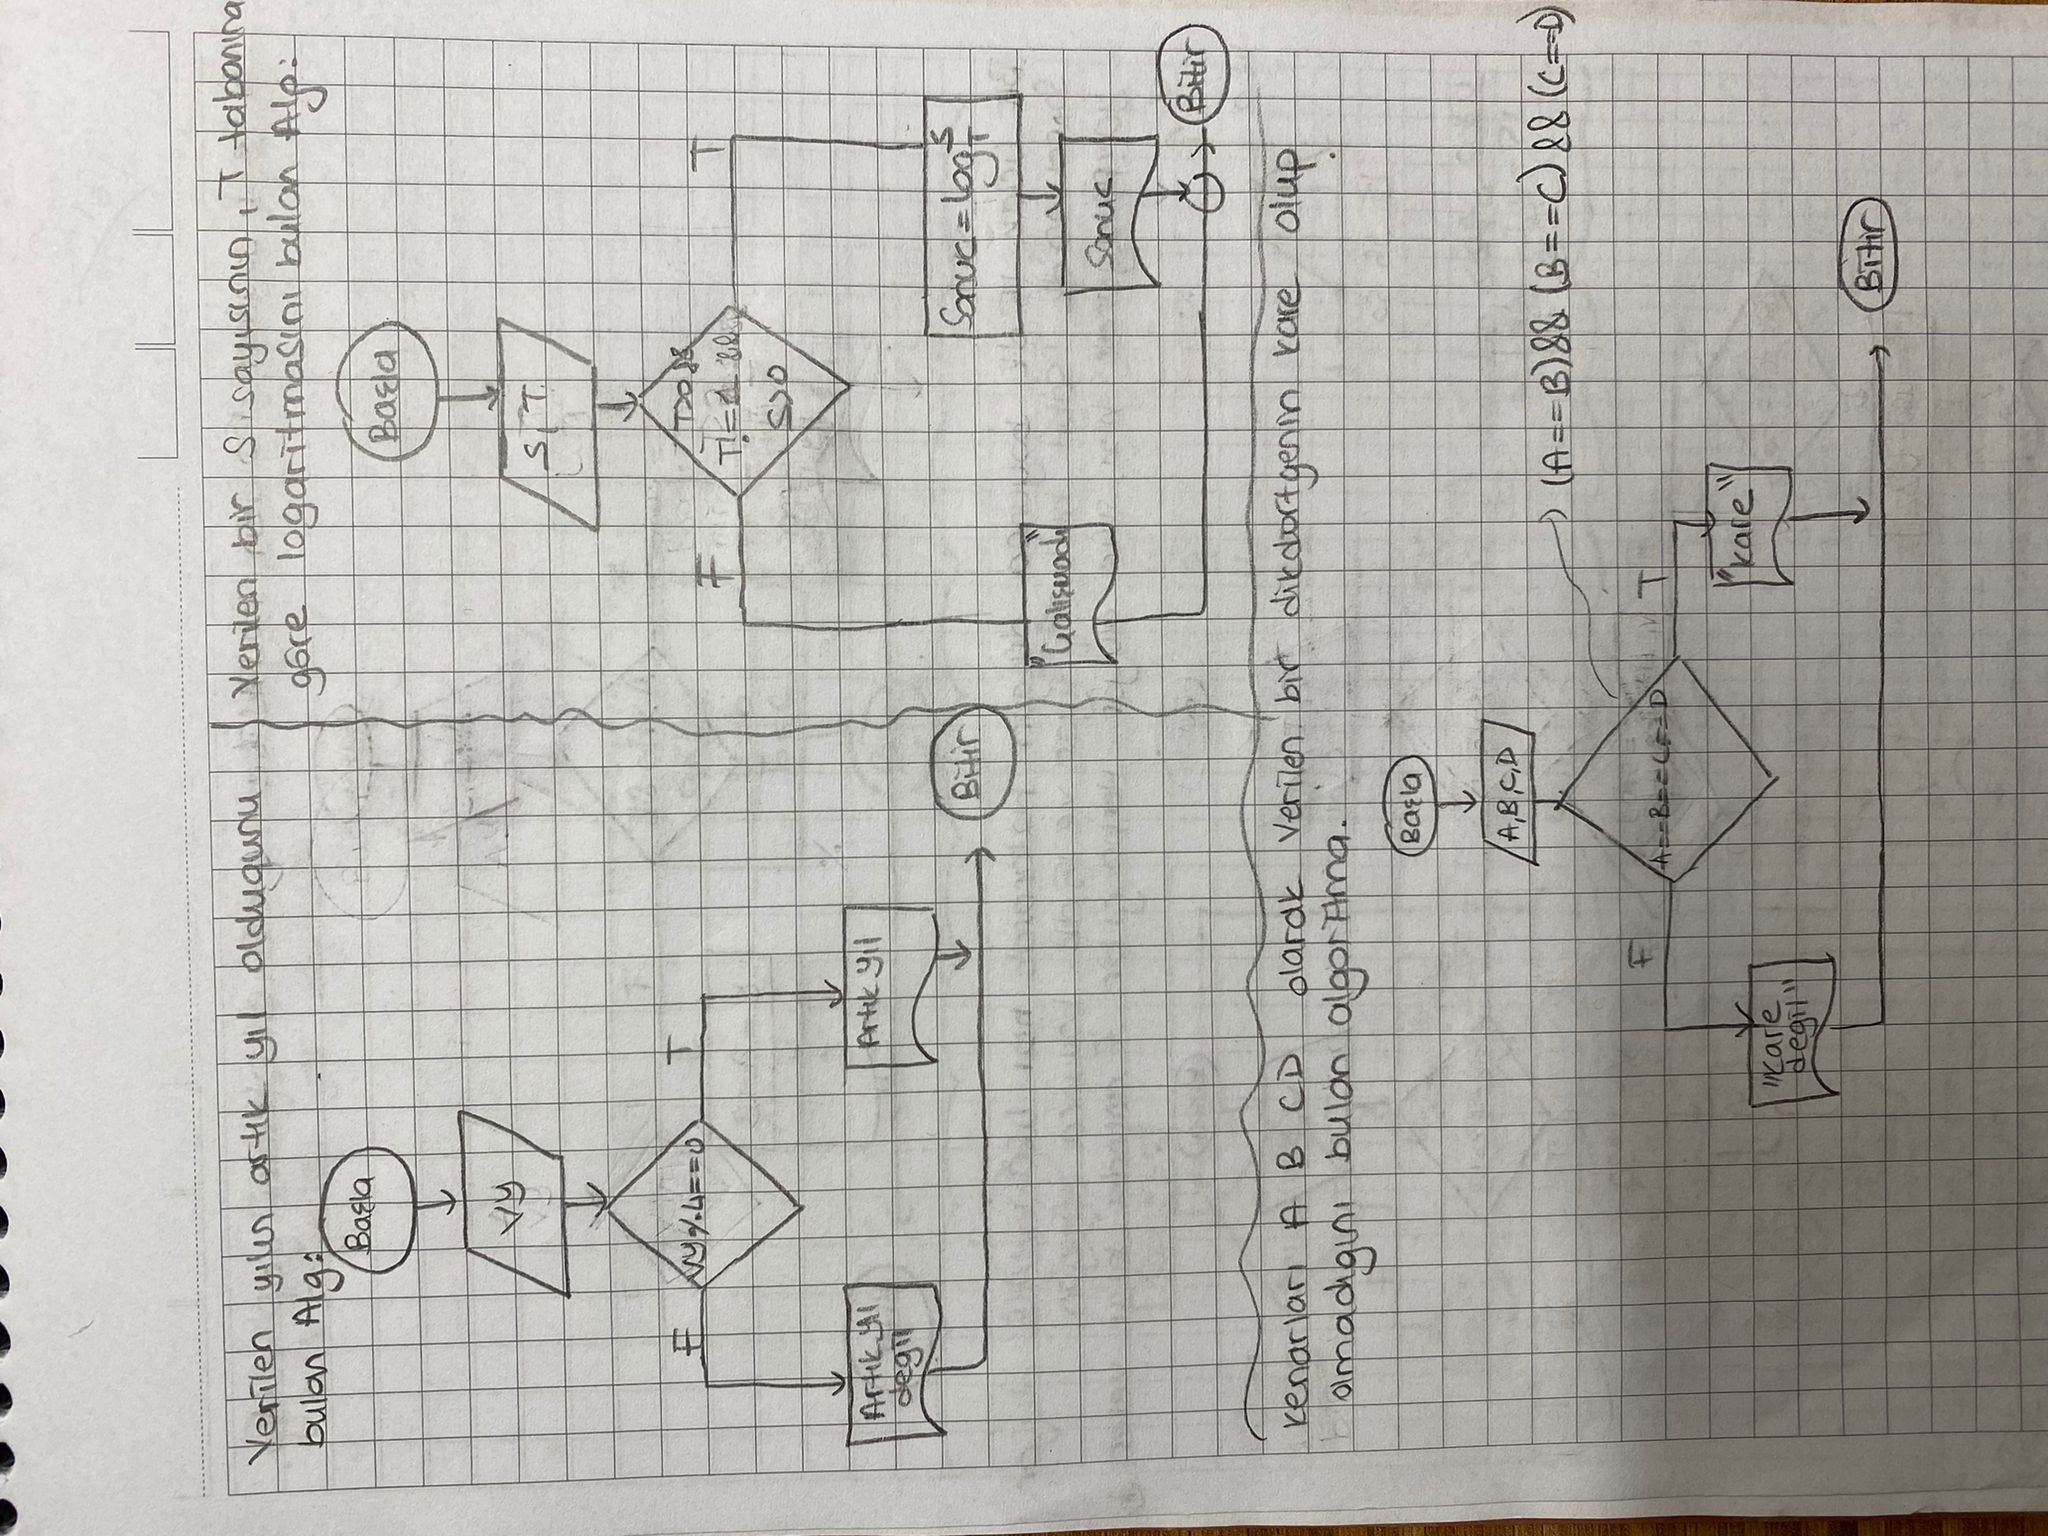 Verilen yılın artık yıl oldugunu
bulan Alg:
Basla
VY
VY%4==0
F
T
Artık yıl
degil
Artık yıl
Bitir
Verilen bir S sayısının, T tabanına
göre logaritmasını bulan Alg:
Basla
S, T
T>0 &&
T!=1 &&
S>0
F
T
"Calısmadı"
Sonuc=logTS
Sonuc
Bitir
kenarları A B CD olarak verilen bir dikdörtgenin kare olup
olmadıgını bulan algoritma.
Basla
A,B,C,D
A==B==C==D
(A==B)&&(B==C)&&(C==D)
F
T
"Kare
degil"
"Kare"
Bitir